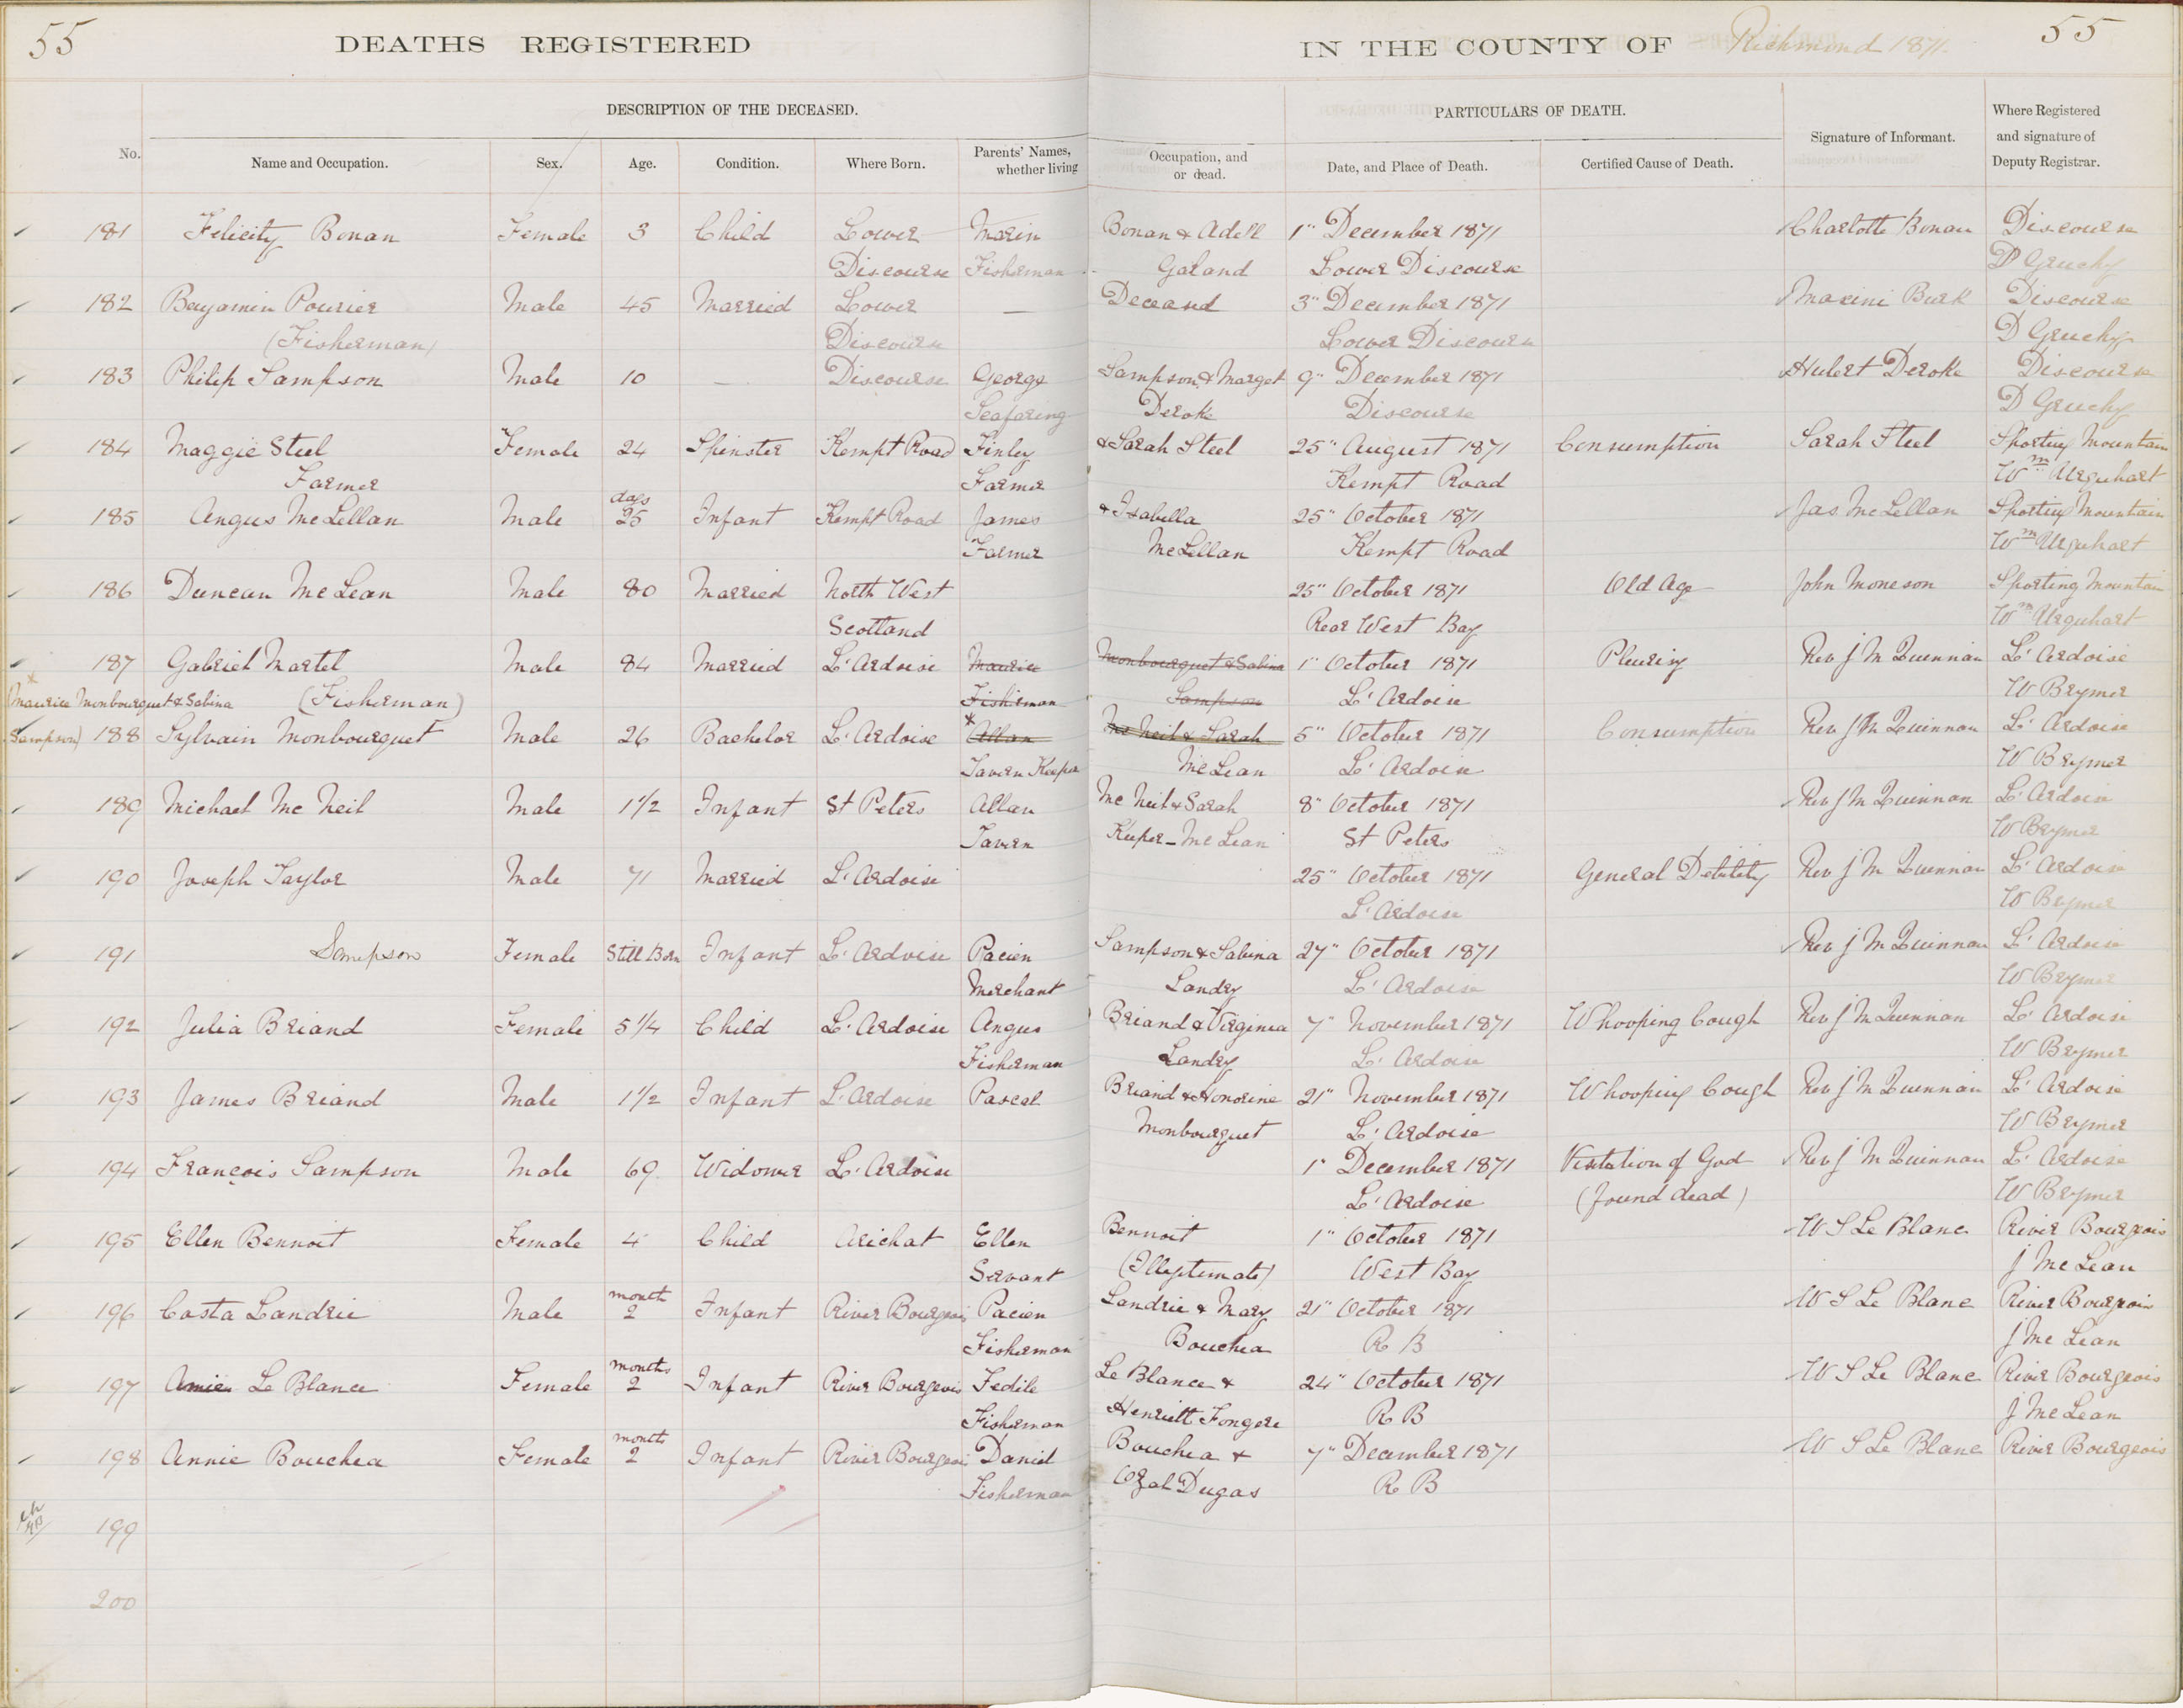 55
DEATHS REGISTERED IN THE COUNTY OF Richmond 1871.
55
DESCRIPTION OF THE DECEASED. PARTICULARS OF DEATH.
No. Name and Occupation. Sex. Age. Condition. Where Born. Parents' Names, whether living Occupation, and or dead. Date, and Place of Death. Certified Cause of Death. Signature of Informant. Where Registered and signature of Deputy Registrar.
181 Felicity Bonan Female 3 Child Lower Marin Bonan & Adell 1" December 1871 Charlotte Bonan Discourse
Discourse Fisherman Galand Lower Discourse D Gruchy
182 Benjamin Pourier Male 45 Married Lower — Deceasd 3" December 1871 Maxini Burk Discourse
(Fisherman) Discourse Lower Discourse D Gruchy
183 Philip Sampson Male 10 — Discourse George Sampson & Marget 9" December 1871 Hubert Deroke Discourse
Seafaring Deroke Discourse D Gruchy
184 Maggie Steel Female 24 Spinster Kempt Road Finley & Sarah Steel 25" August 1871 Consumption Sarah Steel Sporting Mountain
Farmer Farmer Kempt Road Wm Urquhart
days
185 Angus McLellan Male 25 Infant Kempt Road James & Isabella 25" October 1871 Jas McLellan Sporting Mountain
Farmer McLellan Kempt Road Wm Urquhart
186 Duncan McLean Male 80 Married North West 25" October 1871 Old Age John Moneson Sporting Mountain
Scotland Rear West Bay Wm Urquhart
187 Gabriel Martel Male 84 Married L'Ardoise Maurice Monbourquet & Sabina 1" October 1871 Pleurisy Rev J M Quinnan L'Ardoise
* Maurice Monbourquet & Sabina (Fisherman) Fisherman Sampson L'Ardoise W Brymer
Sampson) 188 Sylvain Monbourquet Male 26 Bachelor L'Ardoise * Allan McNeil & Sarah 5" October 1871 Consumption Rev J M Quinnan L'Ardoise
Tavern Keeper McLean L'Ardoise W Brymer
189 Michael McNeil Male 1 1/2 Infant St Peters Allan McNeil & Sarah 8" October 1871 Rev J M Quinnan L'Ardoise
Tavern Keeper - McLean St Peters W Brymer
190 Joseph Taylor Male 71 Married L'Ardoise 25" October 1871 General Debility Rev J M Quinnan L'Ardoise
L'Ardoise W Brymer
191 Sampson Female Still Born Infant L'Ardoise Pacien Sampson & Sabina 27" October 1871 Rev J M Quinnan L'Ardoise
Merchant Landry L'Ardoise W Brymer
192 Julia Briand Female 5 1/4 Child L'Ardoise Angus Briand & Virginia 7" November 1871 Whooping Cough Rev J M Quinnan L'Ardoise
Fisherman Landry L'Ardoise W Brymer
193 James Briand Male 1 1/2 Infant L'Ardoise Pascal Briand & Honorine 21" November 1871 Whooping Cough Rev J M Quinnan L'Ardoise
Monbourquet L'Ardoise W Brymer
194 François Sampson Male 69 Widower L'Ardoise 1" December 1871 Visitation of God Rev J M Quinnan L'Ardoise
L'Ardoise (found dead) W Brymer
195 Ellen Bennoit Female 4 Child Arichat Ellen Bennoit 1" October 1871 W S Le Blanc River Bourgeois
Servant (Illegitimate) West Bay J McLean
month
196 Casta Landrie Male 2 Infant River Bourgeois Pacien Landrie & Mary 21" October 1871 W S Le Blanc River Bourgeois
Fisherman Bouchea R B J McLean
months
197 Le Blance Female 2 Infant River Bourgeois Fedile Le Blance & 24" October 1871 W S Le Blanc River Bourgeois
Fisherman Henriett Fongere R B J McLean
months
198 Annie Bouchea Female 2 Infant River Bourgeois Daniel Bouchea & 7" December 1871 W S Le Blanc River Bourgeois
Fisherman Ozal Dugas R B
199
200